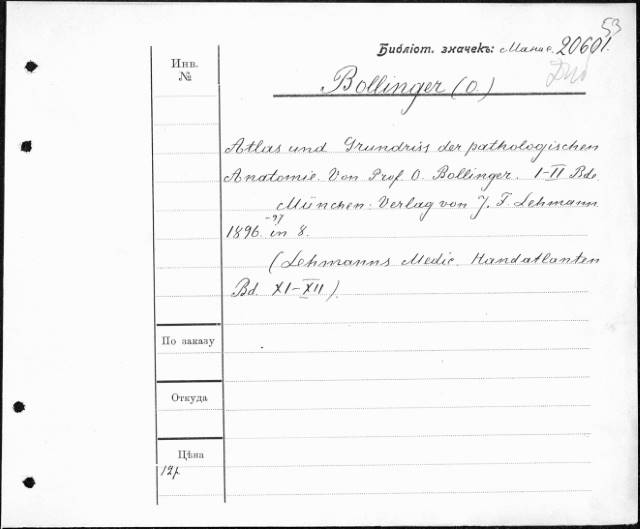 53
Библіот. значекъ: 20601.
Инв.
№
Bollinger (O.)
Atlas und Grundriss der pathologischen
Anatomie. Von Prof. O. Bollinger. I-II Bde.
München. Verlag von J. F. Lehmann
-97
1896. in 8.
(Lehmanns Medic. Handatlanten
Bd. XI-XII).
По заказу
Откуда
Цѣна
12р